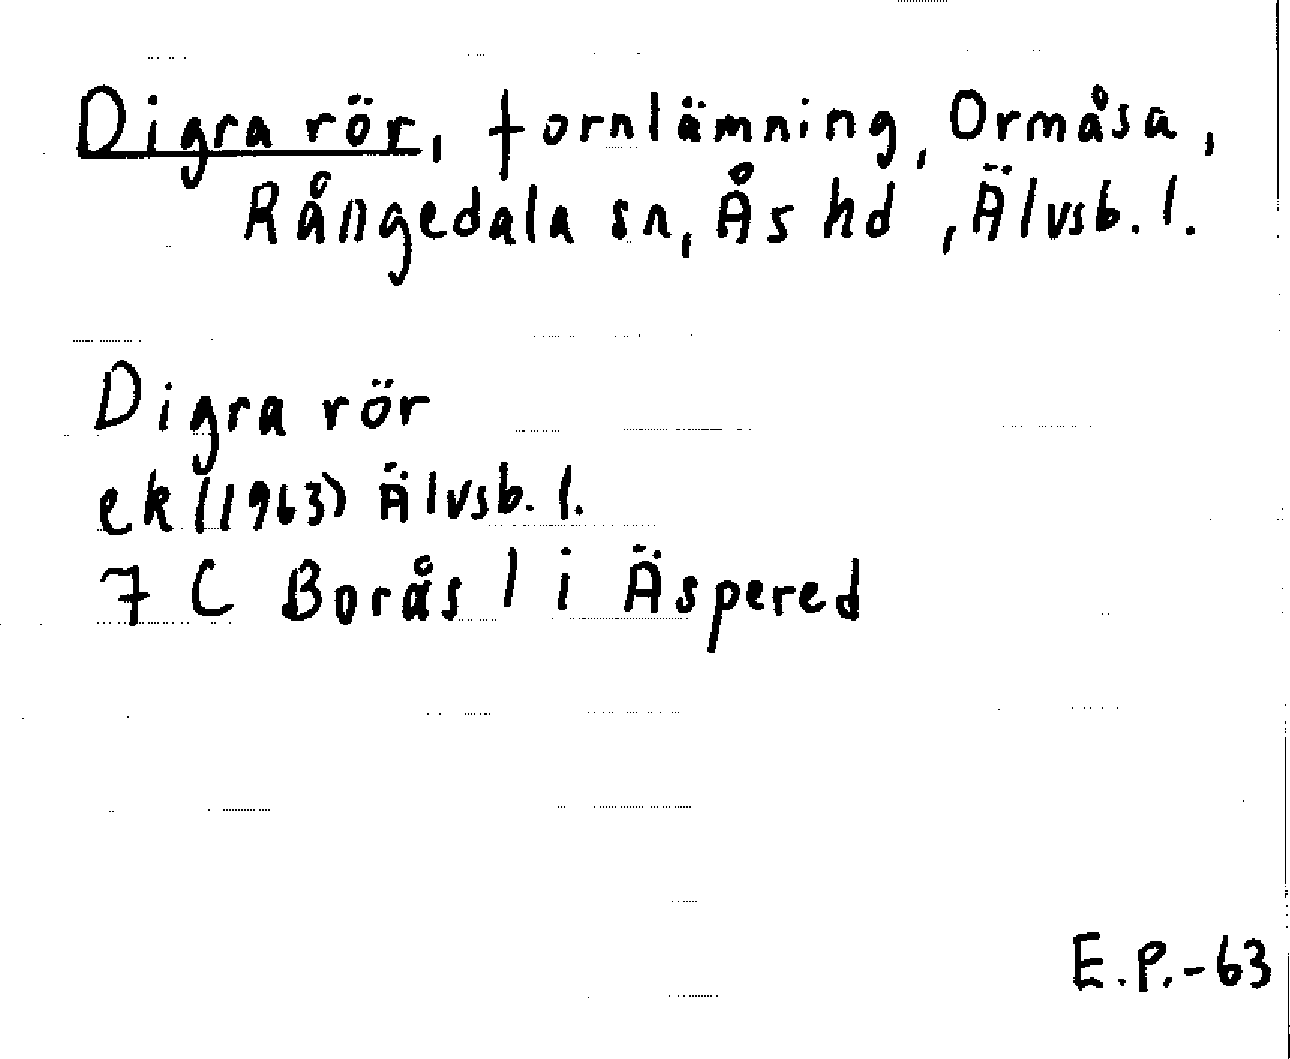 Digra rör, fornlämning, Ormåsa,
Rångedala sn, Ås hd, Älvsb. l.
Digra rör
ek (1963) Älvsb. l.
7 C Borås 1 i Äspered
E.P.-63